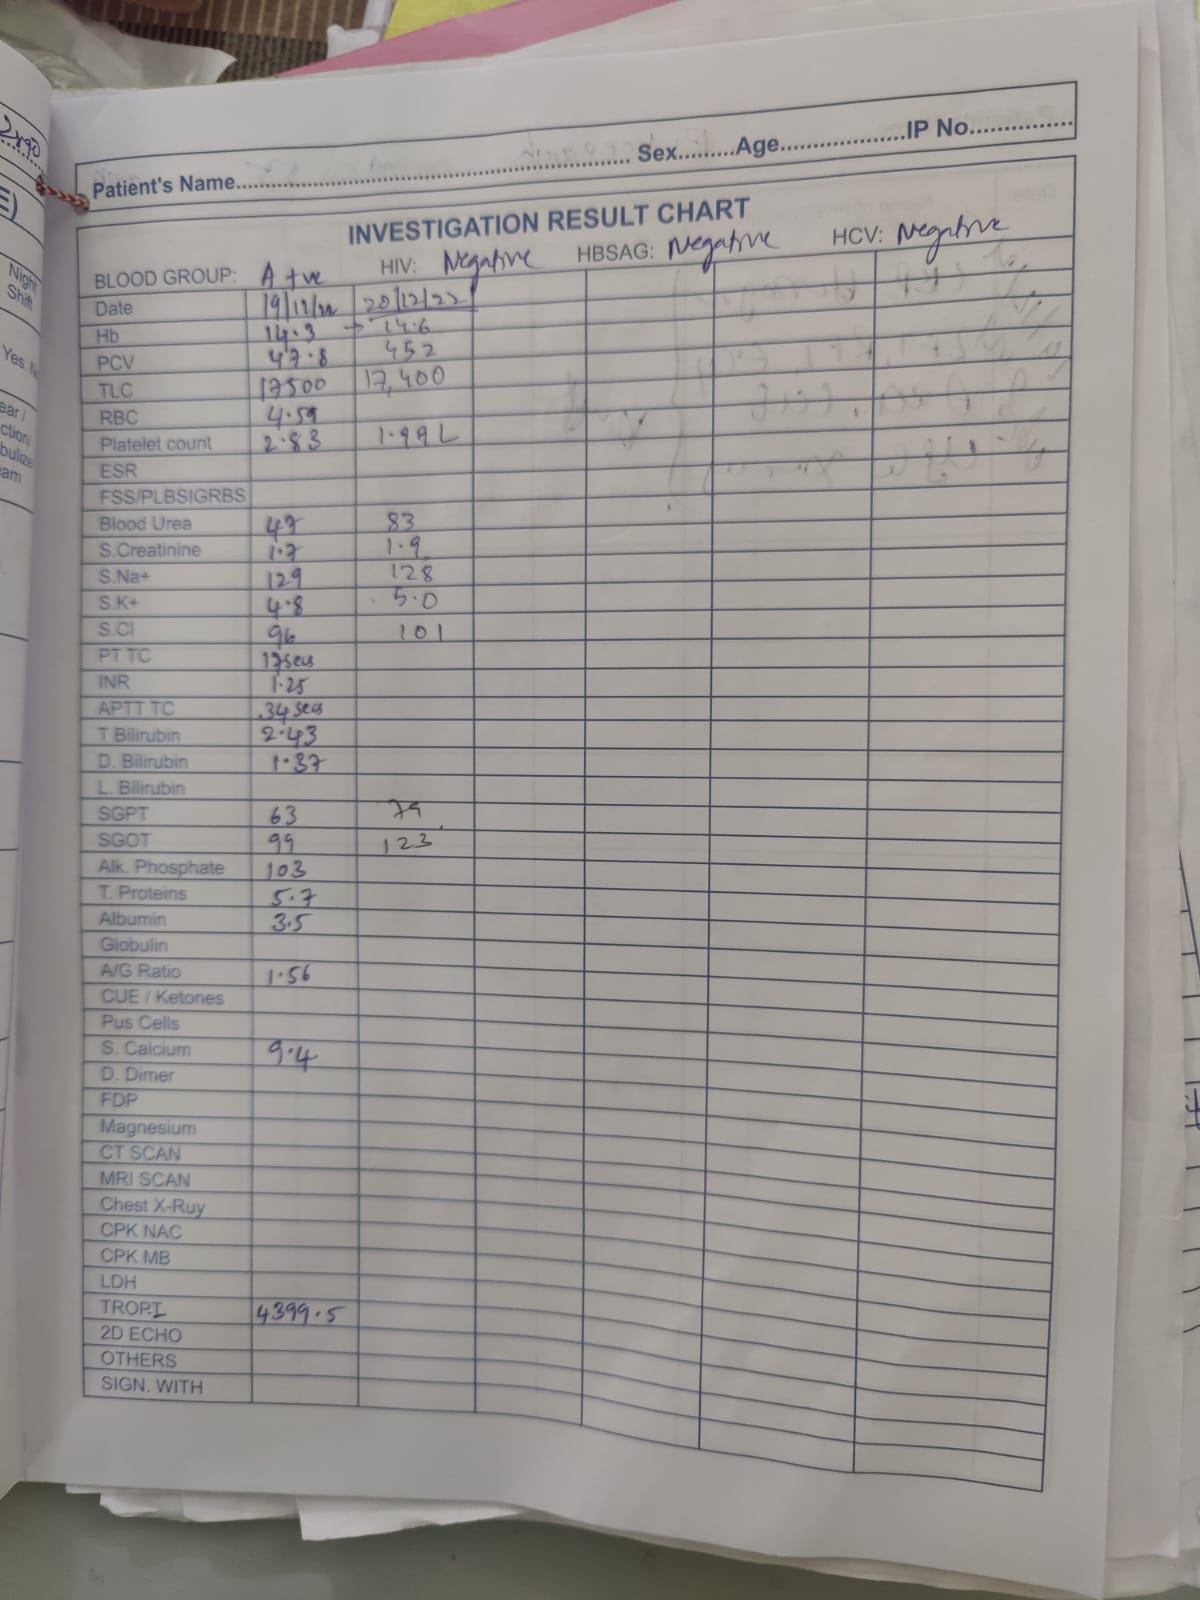 Patient's Name.......... Sex.........Age..........IP No..........
INVESTIGATION RESULT CHART
BLOOD GROUP: A +ve HIV: Negative HBSAG: Negative HCV: Negative
Date 19/12/22 20/12/22
Hb 14.3 → 14.6
PCV 47.8 452
TLC 17500 17,400
RBC 4.59
Platelet count 2.83 1.99L
ESR
FSS/PLBSIGRBS
Blood Urea 47 83
S.Creatinine 1.7 1.9
S.Na+ 129 128
S.K+ 4.8 5.0
S.Cl 96 101
PT TC 17secs
INR 1.25
APTT TC 34 secs
T Bilirubin 2.43
D. Bilirubin 1.37
L. Bilirubin
SGPT 63 79
SGOT 99 123
Alk. Phosphate 103
T. Proteins 5.7
Albumin 3.5
Globulin
A/G Ratio 1.56
CUE / Ketones
Pus Cells
S. Calcium 9.4
D. Dimer
FDP
Magnesium
CT SCAN
MRI SCAN
Chest X-Ruy
CPK NAC
CPK MB
LDH
TROP.I 4399.5
2D ECHO
OTHERS
SIGN. WITH
Night
Shift